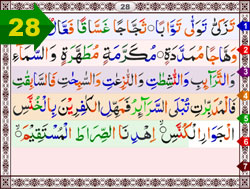 28
28
تَزَكّٰى تَوَلّٰى تَوَّابًا ۙ ثَجَّاجًا غَسَّاقًا فَعَّالٌ 1
وَهَّاجًا مُمَدَّدَةٍ ۙ مُكَرَّمَةٍ مُطَهَّرَةٍ وَالسَّمَآءِ 2
وَالتَّرَآئِبِ وَالنّٰشِطٰتِ وَالنّٰزِعٰتِ وَالسّٰبِحٰتِ فَالسّٰبِقٰتِ 3
فَالْمُدَبِّرٰتِ تُبْلَى السَّرَآئِرُ فَمَهِّلِ الْكٰفِرِيْنَ بِالْخُنَّسِ 4
الْجَوَارِ الْكُنَّسِ ۙ اِهْدِنَا الصِّرَاطَ الْمُسْتَقِيْمَ ۙ 5
6
7